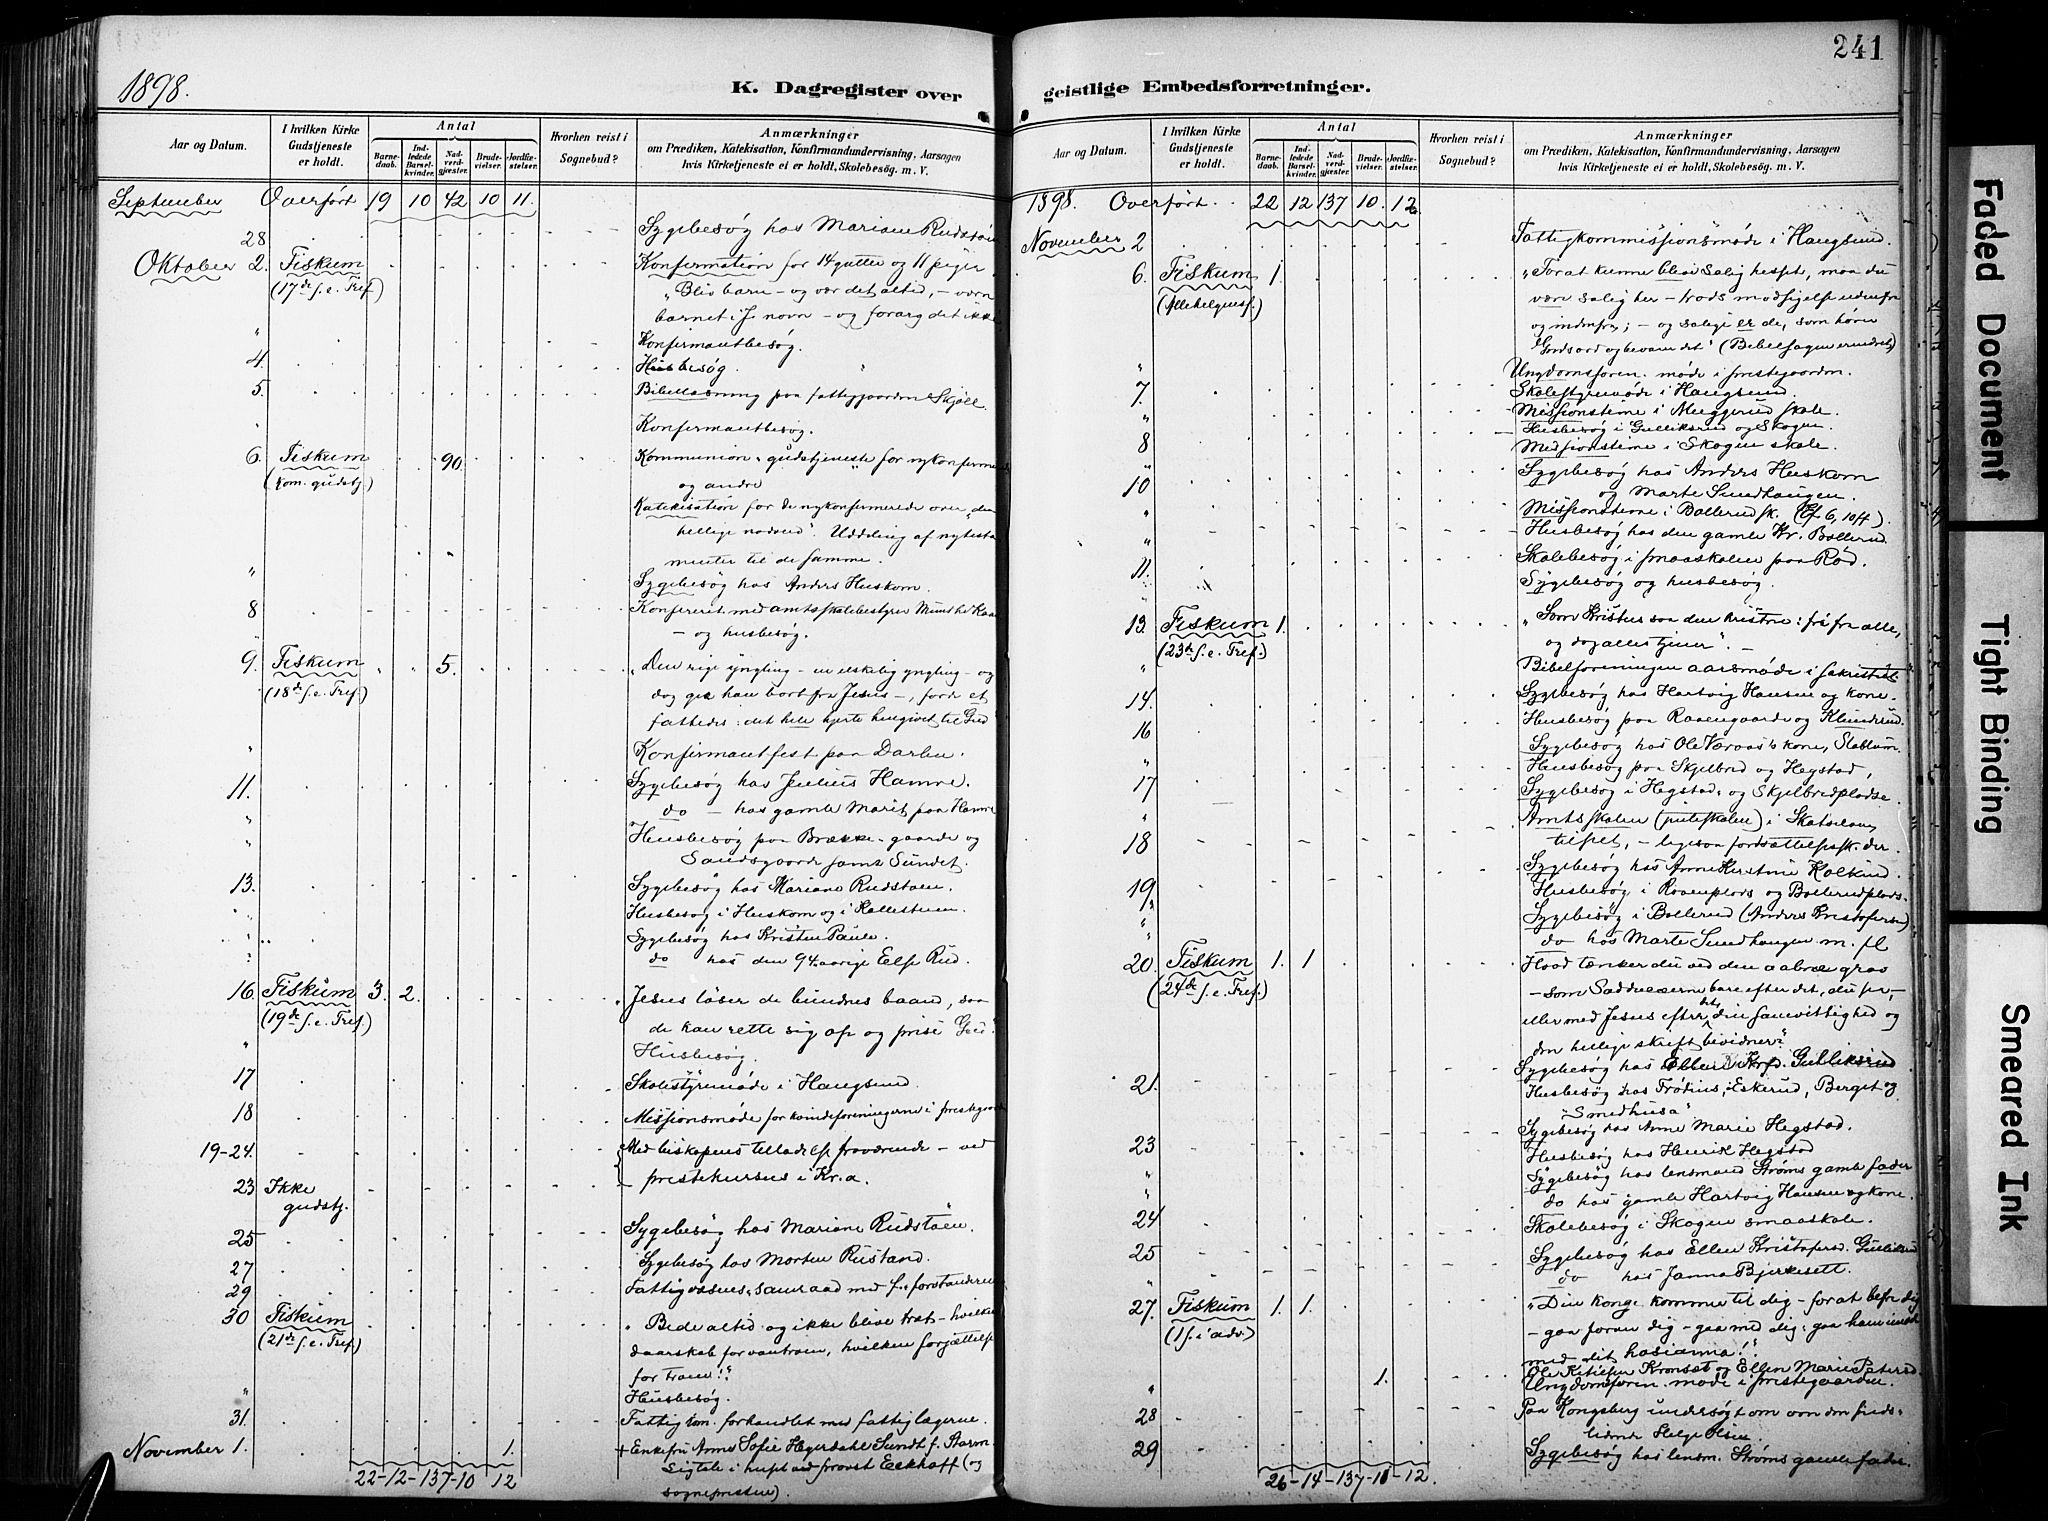 1898.
K. Dagregister over
Aar og Datum.
I hvilken Kirke Gudstjeneste er holdt.
Antal
Barnedaab.
Indledede Barselkvinder.
Nadverdgjæster.
Brudevielser.
Jordfæstelser.
Hvorhen reist i Sognebud?
Anmærkninger
om Prædiken, Katekisation, Konfirmandundervisning, Aarsagen
hvis Kirketjeneste ei er holdt, Skolebesög m. V.
September Overført 19 10 42 10 11.
28 Sygebesøg hos Mariane Rudstøen
Oktober 2. Fiskum Konfirmation for 14 gutter og 11 piger
(17de s. e. Tref.) "Bliv barn – og vær det altid, – værn
barnet i J. navn – og forarg det ikke
" Konfirmantbesøg.
4. Husbesøg.
5. Bibellæsning paa fattiggaarden Skjøll.
" Konfirmantbesøg.
6. Fiskum 90. Kommunion-gudstjeneste for nykonfirmerede
(Kom. gudstj.) og andre
Katekisation for de nykonfirmerede over "den
hellige nadverd". Uddeling af nytesta-
menter til de samme.
" Sygebesøg hos Anders Huskom.
8 Konfereret med amtsskolebestyrer Munthe Kaas
" – og husbesøg.
9. Fiskum " " 5. "Den rige yngling – en elskelig yngling – og
(18de s. e. Tref.) dog gik han bort fra Jesus –, fordi et
fattedes: det hele hjerte hengivet til Gud"
" Konfirmantfest paa Darbu.
11. Sygebesøg hos Julius Hamre.
do – hos gamle Marit paa Hamre
" Husbesøg paa Brække-gaarde og
" Sandsgaarde samt Sundet.
13. Sygebesøg hos Mariane Rudstøen.
" Husbesøg i Huskom og i Kallestuen.
" Sygebesøg hos Kristen Paule.
" do hos den 94-aarige Else Rud.
16 Fiskum 3. 2. "Jesus løser de bundnes baand, saa
(19de s. e. Tref.) de kan rette sig op og prise Gud".
" Husbesøg.
17 Skolestyremøde i Haugsund.
18 Missionsmøde for kvindeforeningerne i prestegaarden
19-24. Med biskopens tilladelse fraværende – ved
prestekursus i Kr.a.
23 Ikke gudstj.
25 Sygebesøg hos Mariane Rudstøen.
27 Sygebesøg hos Morten Rustand.
29 Fattigvæsens-samraad med f.-forstanderne
30 Fiskum "Bede altid og ikke blive træt – hvilken
(21de s. e. Tref.) daarskab for vantroen, hvilken forjættelse
for troen!"
" Husbesøg.
31. Fattigkom. forhandlet med fattiglægerne.
November 1. 1. + Enkefru Anne Sofie Hegerdahl Sundt f. Starm
Sigtele i hvist ved provst Eckhoff (og
sognepresten).
22-12-137-10 12
241
geistlige Embedsforretninger.
Aar og Datum.
I hvilken Kirke Gudstjeneste er holdt.
Antal
Barnedaab.
Indledede Barselkvinder.
Nadverdgjæster.
Brudevielser.
Jordfæstelser.
Hvorhen reist i Sognebud?
Anmærkninger
om Prædiken, Katekisation, Konfirmandundervisning, Aarsagen
hvis Kirketjeneste ei er holdt, Skolebesög m. V.
1898. Overført. 22 12 137 10. 12
November 2 Fattigkommissionsmøde i Haugsund.
6. Fiskum 1. "For at kunne blive salig hisset, maa du
(Allehelgensf.) være salig her – trods modsigelse udenfra
og indenfra; – og salige er de, som hører
Guds ord og bevarer det" (Bibelsagen erindret)
" Ungdomsforen. møde i prestegaarden.
7. Skolestyremøde i Haugsund.
" Missionstime i Muggerud skole.
" Husbesøg i Gulliksrud og Skogen.
8 Missionstime i Skogen skole.
" Sygebesøg hos Anders Huskom
10 og Marte Sundhaugen.
" Missionstime i Bollerud sk. (Ef 6, 10ff).
" Husbesøg hos den gamle Kr. Bollerud
11. Skolebesøg i smaaskolen paa Rød.
" Sygebesøg og husbesøg.
13. Fiskum 1. "Som Kristus saa den kristne: fri fra alle,
(23de s. e. Tref.) og dog alles tjener". –
" Bibelforeningen aarsmøde i sakristiet
14. Sygebesøg hos Hartvig Hansen og kone.
16 Husbesøg paa Ravengaarde og Klunderud.
Sygebesøg hos Ole Værvaas's kone, Stablum
" Husbesøg paa Skjelbred og Hegstad,
17 Sygebesøg i Hegstad- og Skjelbredpladse.
" Amtsskolen (pikeskolen) i Skotselven
18 tilset, – ligesaa fortsættelsessk. der.
Sygebesøg hos Anne Kirstine Kolbrud
19 Husbesøg i Ravenplads og Bollerudplads-
" Sygebesøg i Bollerud (Anders Kristofersen)
" do hos Marte Sundhaugen m. fl
20 Fiskum 1. 1 Hvad tænker du ved den aabne grav
(24de s. e. Tref.) – som Sadducæerne bare efter det, du ser, –
eller med Jesus efter det din samvittighed og
den hellige skrift bevidner?"
Sygebesøg hos Ellen Krf. Gulliksrud
21. Husbesøg hos Frodius, Eskerud, Berget og
"Smedhusa"
Sygebesøg hos Anne Marie Hegstad.
23 Husbesøg hos Henrik Hegstad
" Sygebesøg hos lensmand Strøms gamle fader
" do hos gamle Hartvig Hansen og kone.
24 Skolebesøg i Skogen smaaskole.
25 Sygebesøg hos Ellen Kristofersd. Gulliksrud
" do hos Janna Bjerkesett.
27. Fiskum 1. 1. "Din konge kommer til dig – for at befri dig
(1 s. i adv.) – gaa foran dig – gaa med dig; gaa ham imøde
med dit hosianna!"
1. Ole Kitilsen Kronset og Ellen Marie Petersd.
" Ungdomsforen. møde i prestegaarden.
28 Paa Kongsberg undersøgt om den sinds-
lidende Helge Olsen
29 Sygebesøg hos lensm. Strøms gamle fader.
26-14-137-11-12.
Faded Document
Tight Binding
Smeared Ink